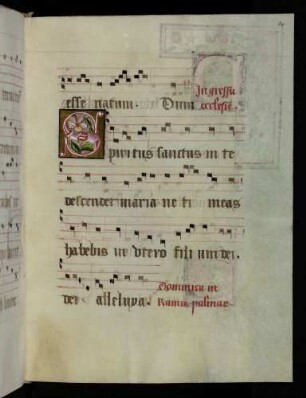 esse natum. Dum Jn gressu
ecclesie.
Spiritus sanctus in te
descendet maria ne ti meas
habebis in vtero fili um dei.
alleluya. Dominica in
dei Ramis palmar